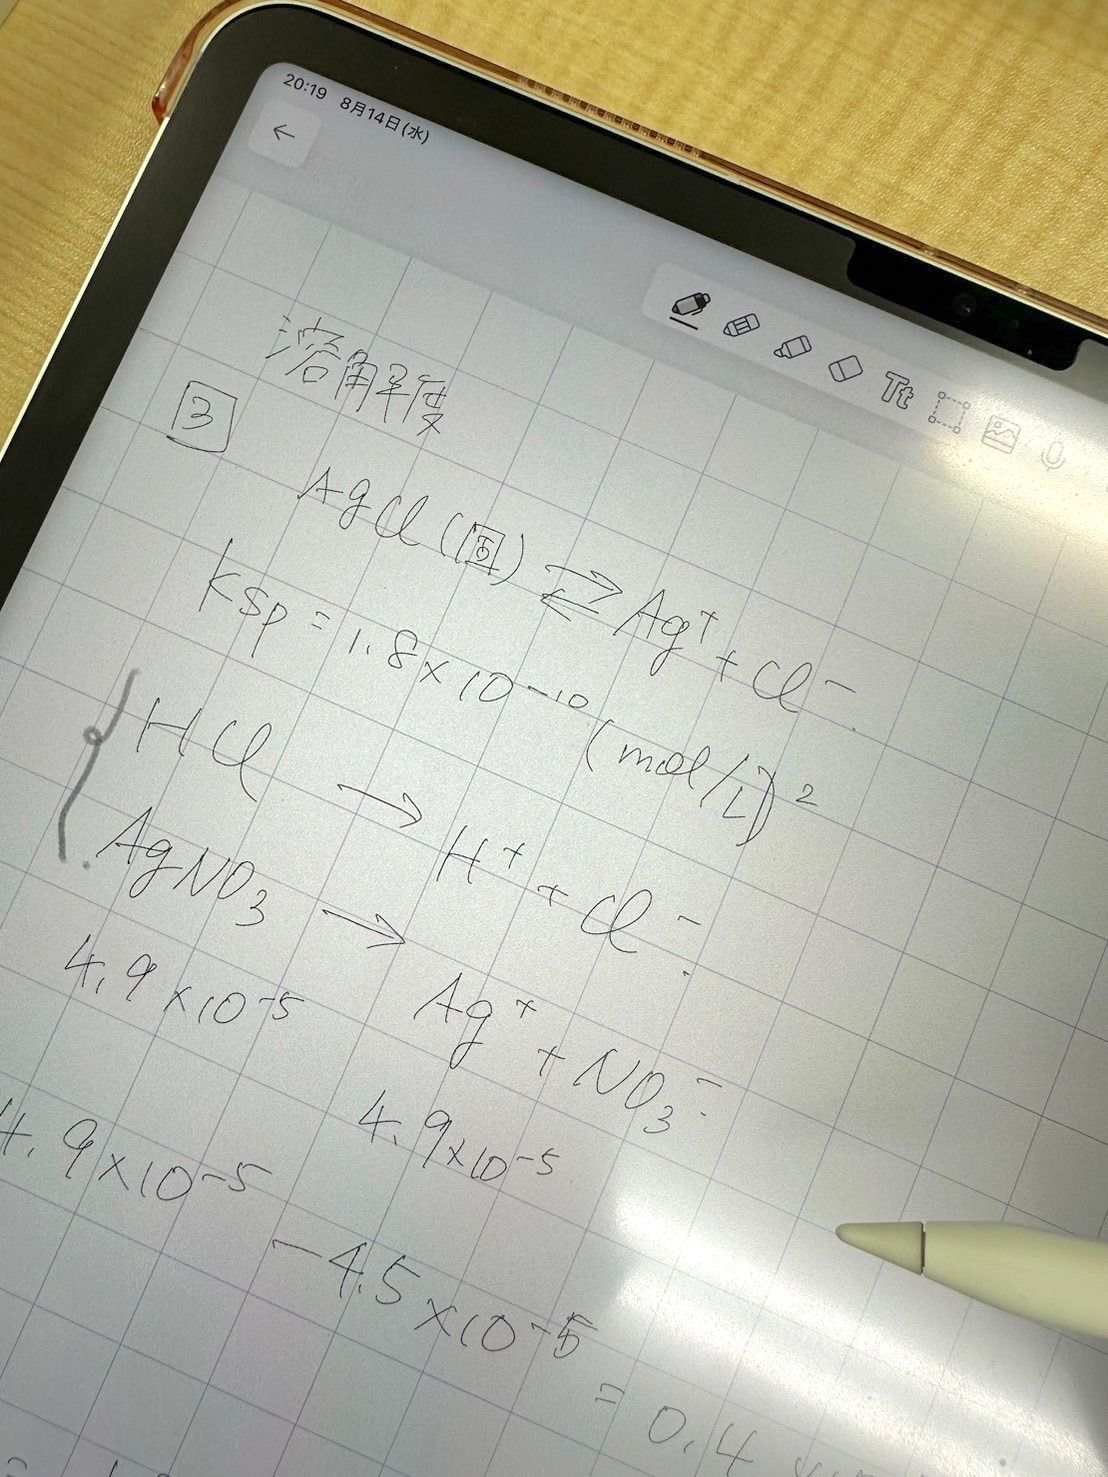 20:19 8月14日(水)
Tt
溶解度
3
AgCl (固) ⇄ Ag⁺ + Cl⁻
Ksp = 1.8×10⁻¹⁰ (mol/L)²
HCl → H⁺ + Cl⁻
AgNO₃ → Ag⁺ + NO₃⁻
4.9×10⁻⁵ 4.9×10⁻⁵
4.9×10⁻⁵ − 4.5×10⁻⁵ = 0.4